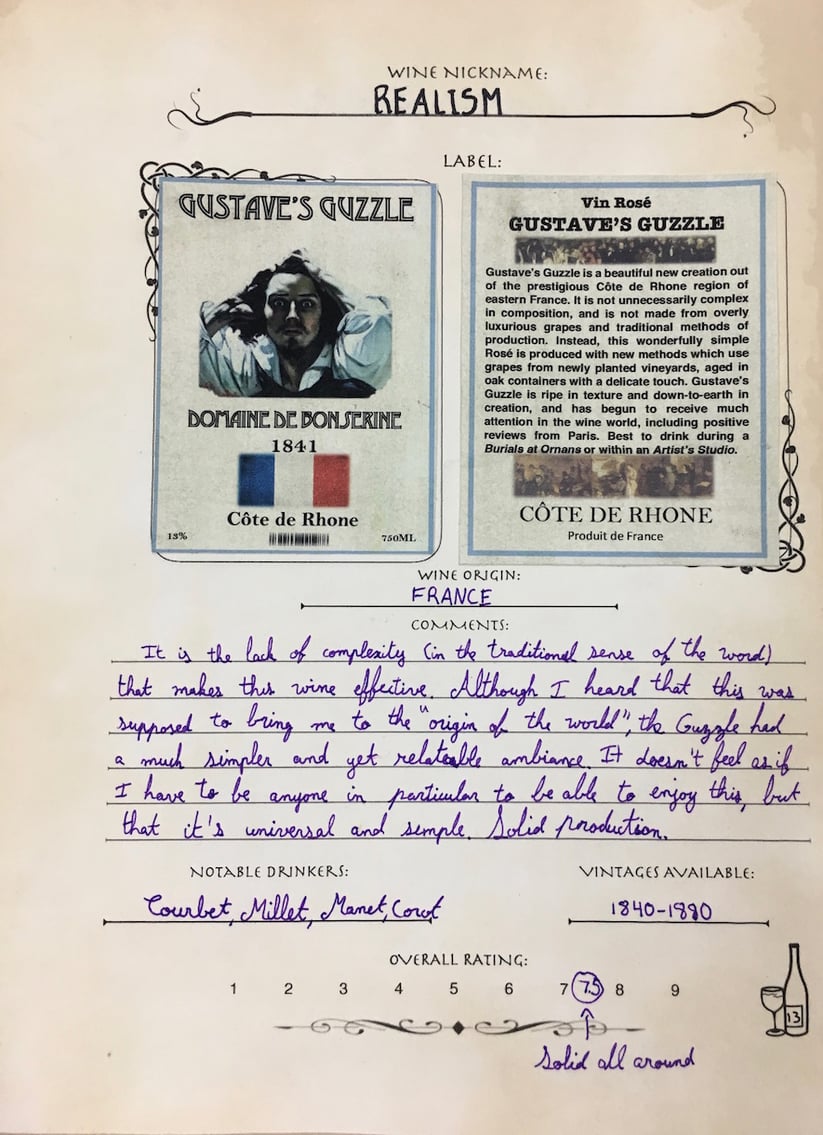 WINE NICKNAME:
REALISM
LABEL:
GUSTAVE'S GUZZLE
DOMAINE DE BONSERINE
1841
Côte de Rhone
13%
750ML
Vin Rosé
GUSTAVE'S GUZZLE
Gustave's Guzzle is a beautiful new creation out
of the prestigious Côte de Rhone region of
eastern France. It is not unnecessarily complex
in composition, and is not made from overly
luxurious grapes and traditional methods of
production. Instead, this wonderfully simple
Rosé is produced with new methods which use
grapes from newly planted vineyards, aged in
oak containers with a delicate touch. Gustave's
Guzzle is ripe in texture and down-to-earth in
creation, and has begun to receive much
attention in the wine world, including positive
reviews from Paris. Best to drink during a
Burials at Ornans or within an Artist's Studio.
CÔTE DE RHONE
Produit de France
WINE ORIGIN:
FRANCE
COMMENTS:
It is the lack of complexity (in the traditional sense of the word)
that makes this wine effective. Although I heard that this was
supposed to bring me to the "origin of the world", the Guzzle had
a much simpler and yet relateable ambiance. It doesn't feel as if
I have to be anyone in particular to be able to enjoy this, but
that it's universal and simple. Solid production.
NOTABLE DRINKERS:
Courbet, Millet, Manet, Corot
VINTAGES AVAILABLE:
1840-1880
OVERALL RATING:
1 2 3 4 5 6 7 7.5 8 9
Solid all around
13